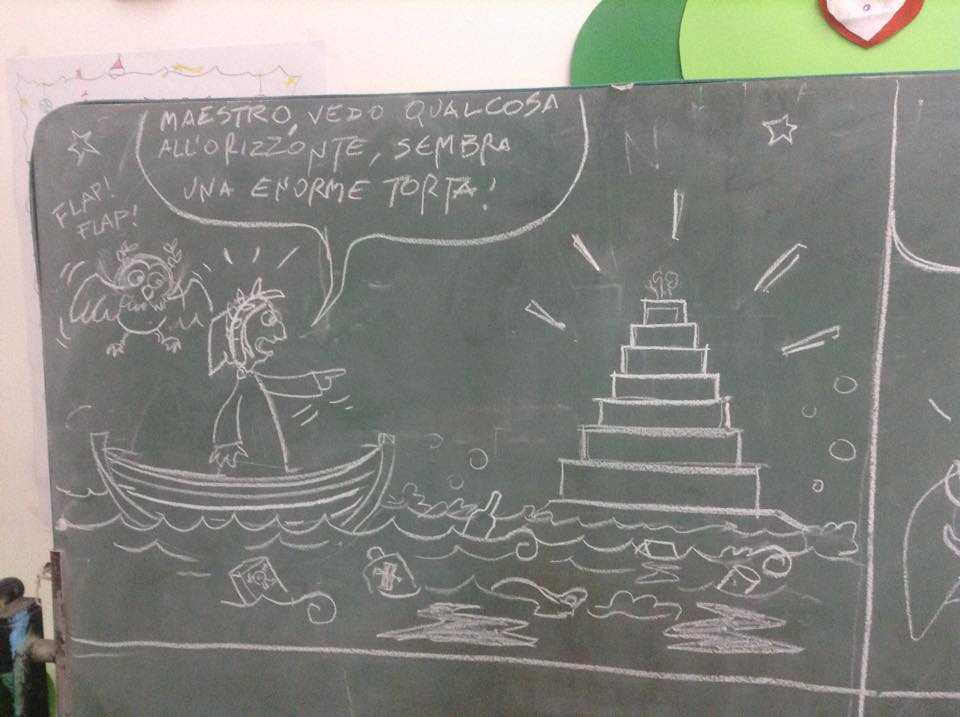 MAESTRO, VEDO QUALCOSA
ALL'ORIZZONTE, SEMBRA
UNA ENORME TORTA!
FLAP!
FLAP!
N